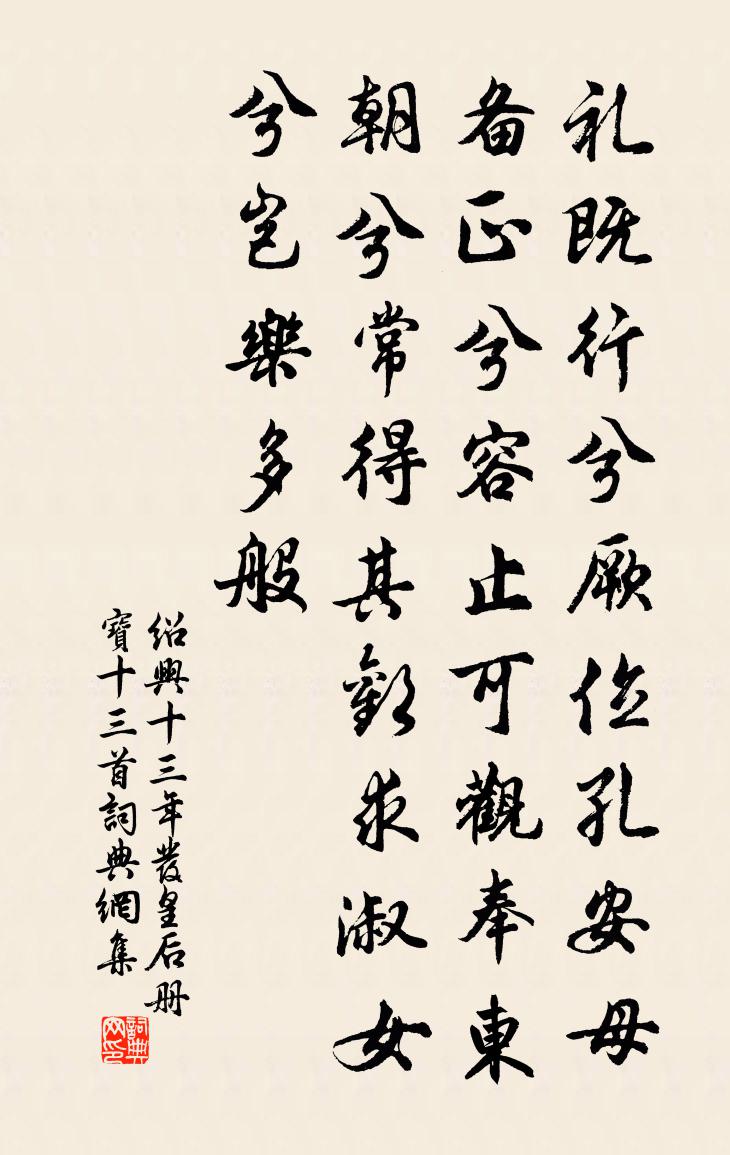 礼既行兮厥位孔安母
备正兮容止可觀奉東
朝兮常得其歡求淑女
兮岂樂多般
紹興十三年發皇后册
寶十三首詞典網集
詞典网印